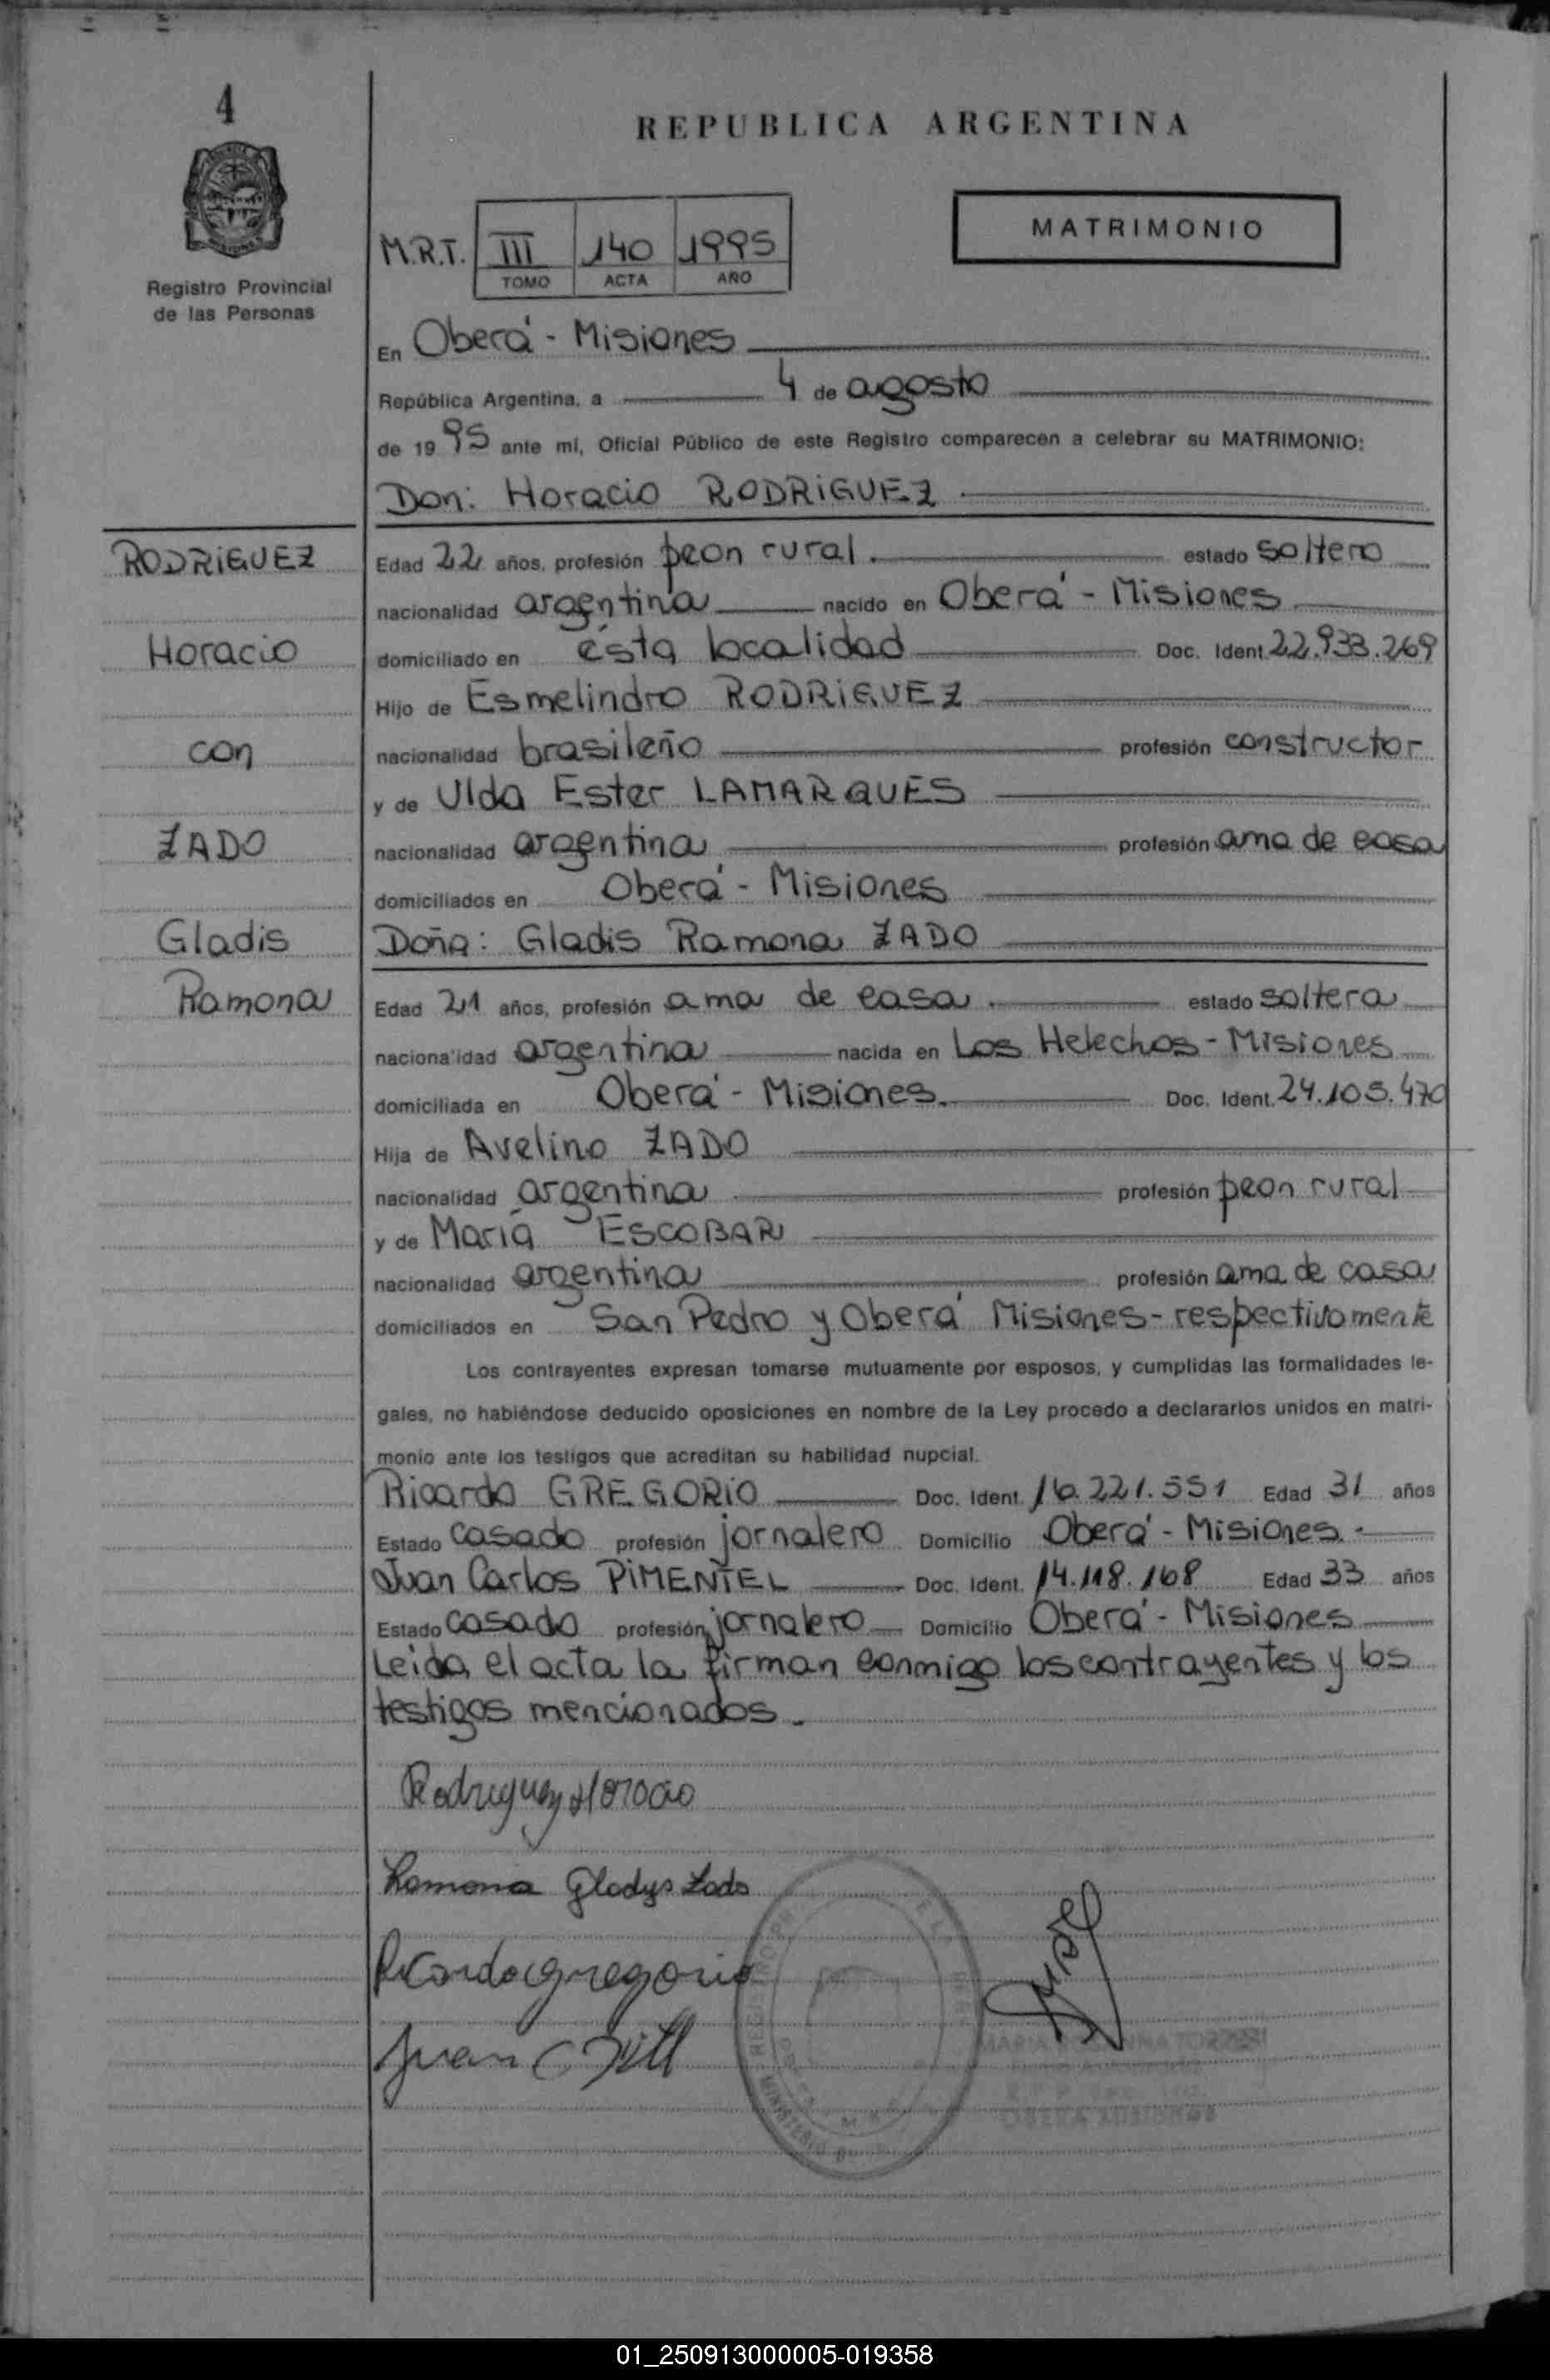 4
REPUBLICA ARGENTINA
MATRIMONIO
M.R.T. III 140 1995
TOMO ACTA AÑO
Registro Provincial
de las Personas
En Oberá - Misiones
República Argentina, a 4 de agosto
de 19 95 ante mi, Oficial Público de este Registro comparecen a celebrar su MATRIMONIO:
Don: Horacio RODRIGUEZ
RODRIGUEZ
Edad 22 años, profesión peon rural. estado soltero
nacionalidad argentina nacido en Oberá - Misiones
Horacio
domiciliado en ésta localidad Doc. Ident. 22.933.269
Hijo de Esmelindro RODRIGUEZ
con
nacionalidad brasileño profesión constructor
y de Ulda Ester LAMARQUES
ZADO
nacionalidad argentina profesión ama de casa
domiciliados en Oberá - Misiones
Gladis
Doña: Gladis Ramona ZADO
Ramona
Edad 21 años, profesión ama de casa. estado soltera
naciona'idad argentina nacida en Los Helechos - Misiones
domiciliada en Oberá - Misiones. Doc. Ident. 24.105.470
Hija de Avelino ZADO
nacionalidad argentina profesión peon rural
y de María ESCOBAR
nacionalidad argentina profesión ama de casa
domiciliados en San Pedro y Oberá Misiones - respectivamente
Los contrayentes expresan tomarse mutuamente por esposos, y cumplidas las formalidades le-
gales, no habiéndose deducido oposiciones en nombre de la Ley procedo a declararlos unidos en matri-
monio ante los testigos que acreditan su habilidad nupcial.
Ricardo GREGORIO Doc. Ident. 16.221.551 Edad 31 años
Estado casado profesión jornalero Domicilio Oberá - Misiones.-
Juan Carlos PIMENTEL Doc. Ident. 14.118.168 Edad 33 años
Estado casado profesión jornalero Domicilio Oberá - Misiones
Leida el acta la firman conmigo los contrayentes y los
testigos mencionados.-
Rodriguez Horacio
Ramona Gladys Zado
Ricardo gregorio
Juan C
OBERA MISIONES
01_250913000005-019358